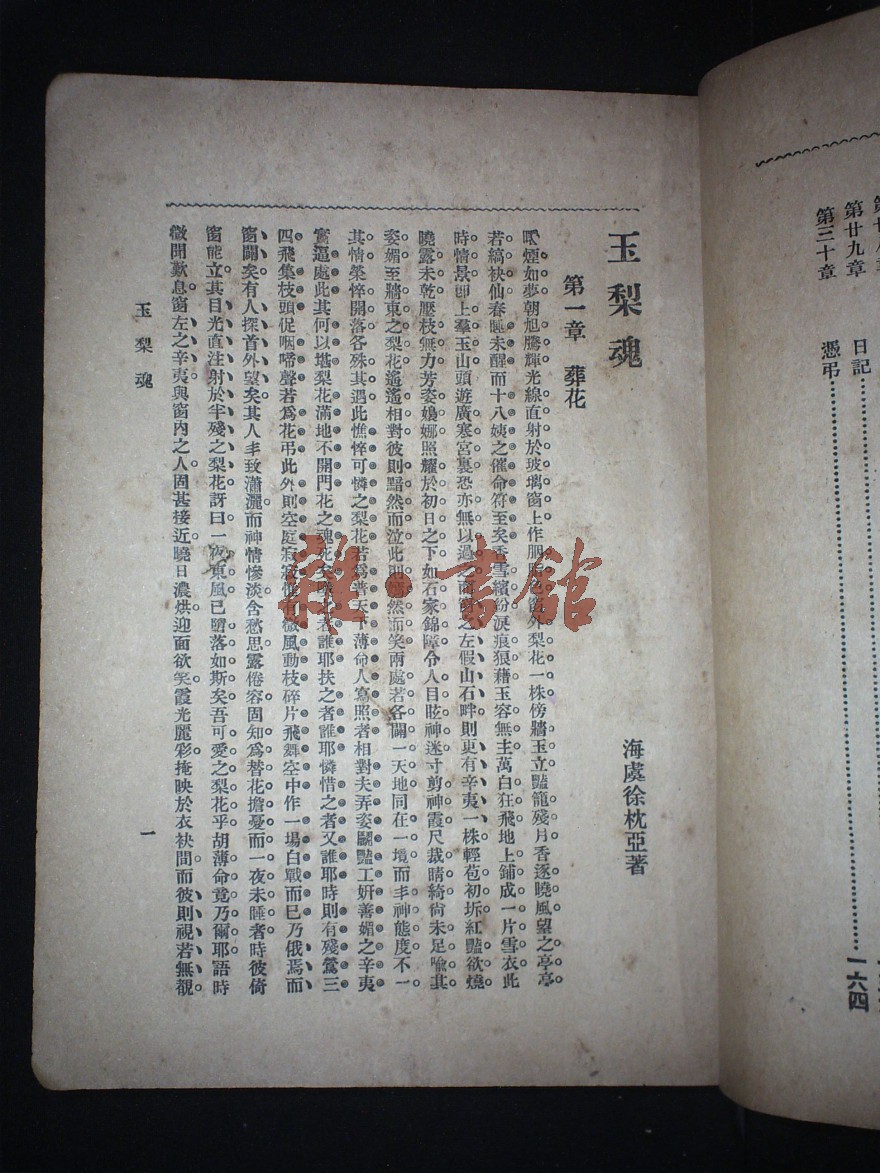 第廿九章 日記
第三十章 憑弔……一六四
玉梨魂
海虞徐枕亞著
第一章 葬花
煙如夢朝旭騰輝光線直射於玻璃窗上作胭脂色窗外梨花一株傍牆玉立豔籠殘月香逐曉風望之亭亭
若縞袂仙春睡未醒而十八姨之催命符至矣香雪繽紛淚痕狼藉玉容無主萬白狂飛地上鋪成一片雪衣此
時情景卽上羣玉山頭遊廣寒宮裏恐亦無以過之而窗之左假山石畔則更有辛夷一株輕苞初坼紅豔欲燒
曉露未乾壓枝無力芳姿嬝娜照耀於初日之下如石家錦障令人目眩神迷寸剪神霞尺裁晴綺尙未足喩其
姿媚至牆東之梨花遙遙相對彼則黯然而泣此則嫣然而笑兩處若各闢一天地同在一境而丰神態度不一
其情榮悴開落各殊其遇此憔悴可憐之梨花若爲普天下薄命人寫照者相對夫弄姿鬭豔工姸善媚之辛夷
實逼處此其何以堪梨花滿地不開門花之魂死矣喚之者誰耶扶之者誰耶憐惜之者又誰耶時則有殘鶯三
四飛集枝頭促咽啼聲若爲花弔此外則空庭寂寂惟有微風動枝碎片飛舞空中作一場白戰而已乃俄焉而
窗闢矣有人探首外望矣其人丰致瀟灑而神情慘淡含愁思露倦容固知爲替花擔憂而一夜未睡者時彼倚
窗而立其目光直注射於半殘之梨花訝曰一夜東風已墮落如斯矣吾可愛之梨花乎胡薄命竟乃爾耶語時
微開歎息窗左之辛夷與窗內之人固甚接近曉日濃烘迎面欲笑霞光麗彩掩映於衣袂間而彼則視若無覩
玉梨魂
一
雜·書館